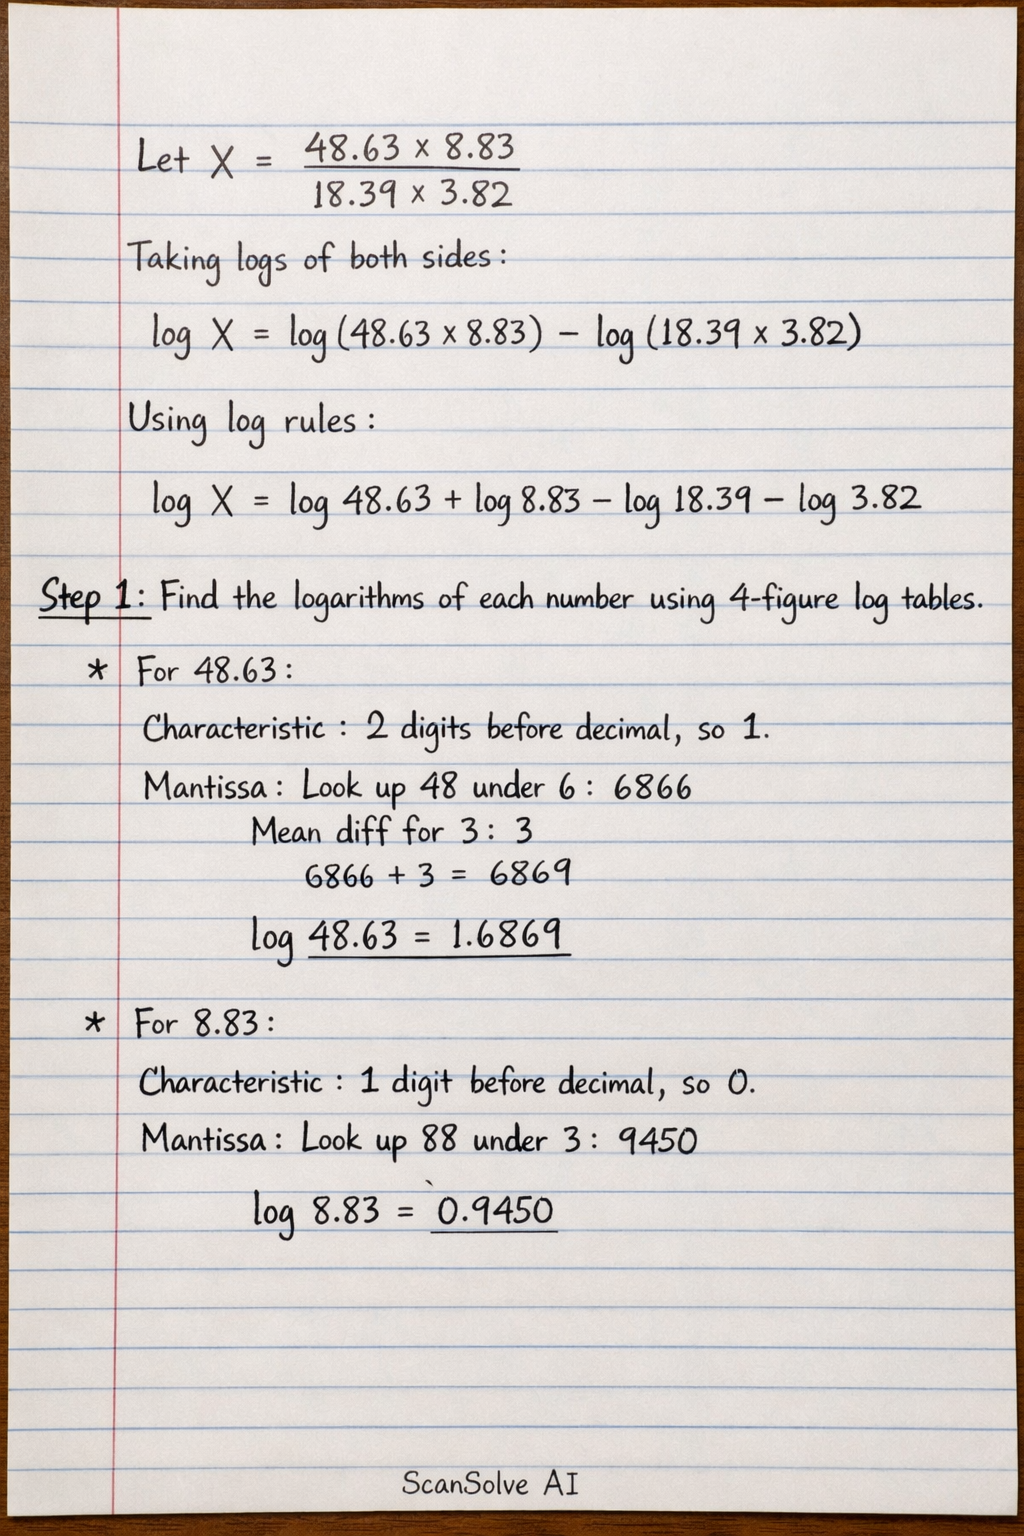 Let X = 48.63 × 8.83 / 18.39 × 3.82
Taking logs of both sides:
log X = log (48.63 × 8.83) − log (18.39 × 3.82)
Using log rules:
log X = log 48.63 + log 8.83 − log 18.39 − log 3.82
Step 1: Find the logarithms of each number using 4-figure log tables.
* For 48.63:
Characteristic : 2 digits before decimal, so 1.
Mantissa : Look up 48 under 6 : 6866
Mean diff for 3 : 3
6866 + 3 = 6869
log 48.63 = 1.6869
* For 8.83:
Characteristic : 1 digit before decimal, so 0.
Mantissa : Look up 88 under 3 : 9450
log 8.83 = 0.9450
ScanSolve AI